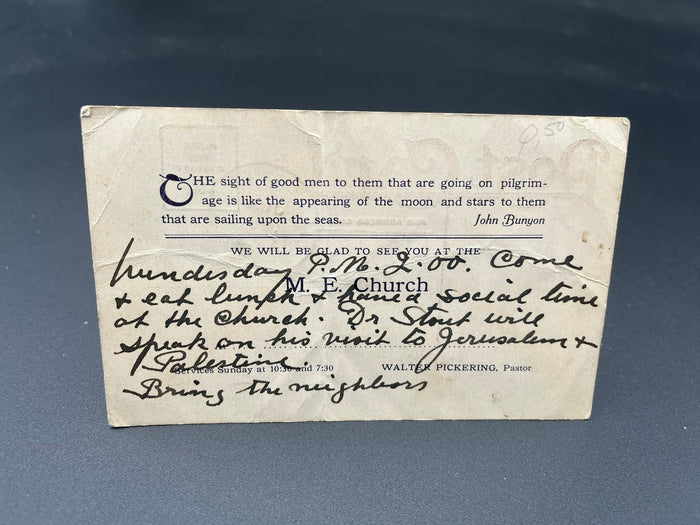 9.50
THE sight of good men to them that are going on pilgrim-
age is like the appearing of the moon and stars to them
that are sailing upon the seas. John Bunyon
WE WILL BE GLAD TO SEE YOU AT THE
Wundesday P.M. 2.00. Come
M. E. Church
& eat lunch & have a social time
at the church. Dr Stout will
speak on his visit to Jerusalem &
Palestine.
Services Sunday at 10:30 and 7:30 WALTER PICKERING, Pastor
Bring the neighbors